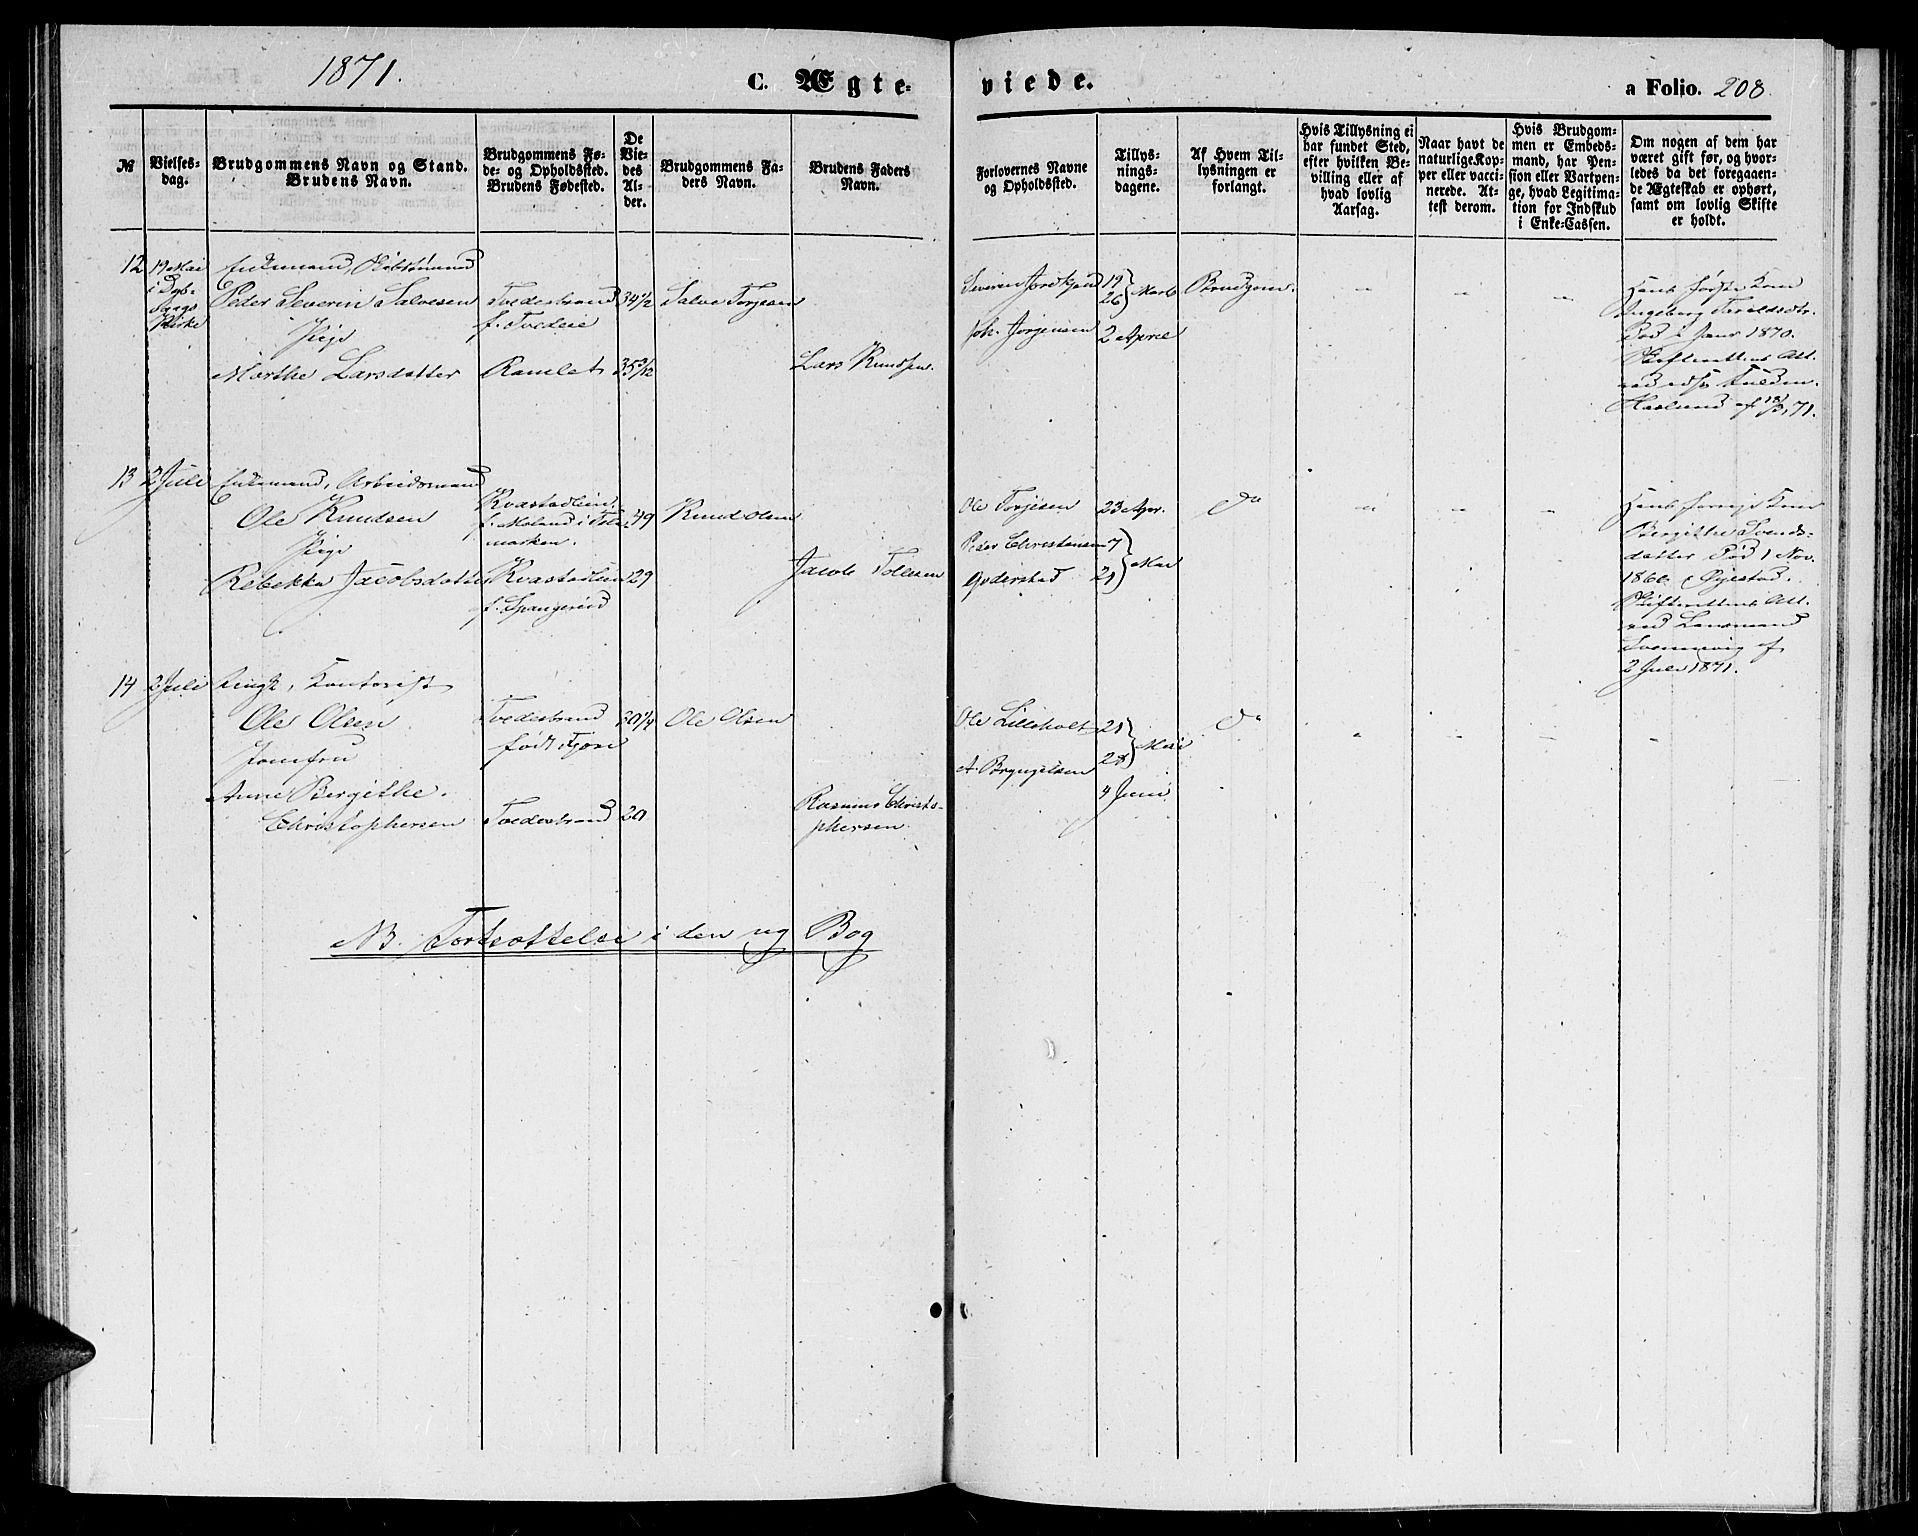 1871.
C. Ægte-
viede.
a Folio. 208.
№
Vielses-
dag.
Brudgommens Navn og Stand.
Brudens Navn.
Brudgommens Fø-
de- og Opholdssted.
Brudens Fødested.
De
Vie-
des
Al-
der.
Brudgommens Fa-
ders Navn.
Brudens Faders
Navn.
Forlovernes Navne
og Opholdssted.
Tillys-
nings-
dagene.
Af Hvem Til-
lysningen er
forlangt.
Hvis Tillysning ei
har fundet Sted,
efter hvilken Be-
villing eller af
hvad lovlig
Aarsag.
Naar havt de
naturlige Kop-
per eller vacci-
nerede. At-
test derom.
Hvis Brudgom-
men er Embeds-
mand, har Pen-
sion eller Vartpen-
ge, hvad Legitima-
tion for Indskud
i Enke-Cassen.
Om nogen af dem har
været gift før, og hvor-
ledes da det foregaaen-
de Ægteskab er ophørt,
samt om lovlig Skifte
er holdt.
12
19 Mai
i Dyb-
vaags
Kirke
Enkemand,
Peder Severin Salvesen
Pige
Marthe Larsdatter
Tvedestrand
f. Tvedeie
Ramlet
34 1/2
35 3/12
Salve Torjesen
Lars Knudsen.
Severin
Joh. Jørgensen
19
26 } Marts
2 April
Brudgom.
" " "
Hans første Kone
Ingeborg Taraldsdtr.
død i Janr 1870.
Skifterettens Att.
Haslund af 18/3 71.
13
2 Juli
Enkemand, Arbeidsmand
Ole Knudsen
Pige
Rebekka Jacobsdatter
Kvastadlien.
f. Moland i Tele-
marken.
Kvastadlien
f. Spangereid
49
29
Knud Olsen
Jacob Tollesen
Ole Torjesen
Peder Christensen
Goderstad
23 Apr.
7
21 } Mai
do
" " "
Hans forrige Kone
Bergithe Svends-
datter død 1 Nov.
1860 i Øyestad.
Skifterettens Att.
ved Lensmand
Svennevig af
2 Juli 1871.
14
2 Juli
Ungk, Kontorist
Ole Olsen
Jomfru
Anne Bergithe
Christophersen
Tvedestrand
født i Gjøv
Tvedestrand
30 1/4
20
Ole Olsen
Rasmus Christo-
phersen.
Ole Lilleholt
A. Bryngelsen
21
28 } Mai
4 Juni
do
" " "
NB. Fortsættelse i den ny Bog